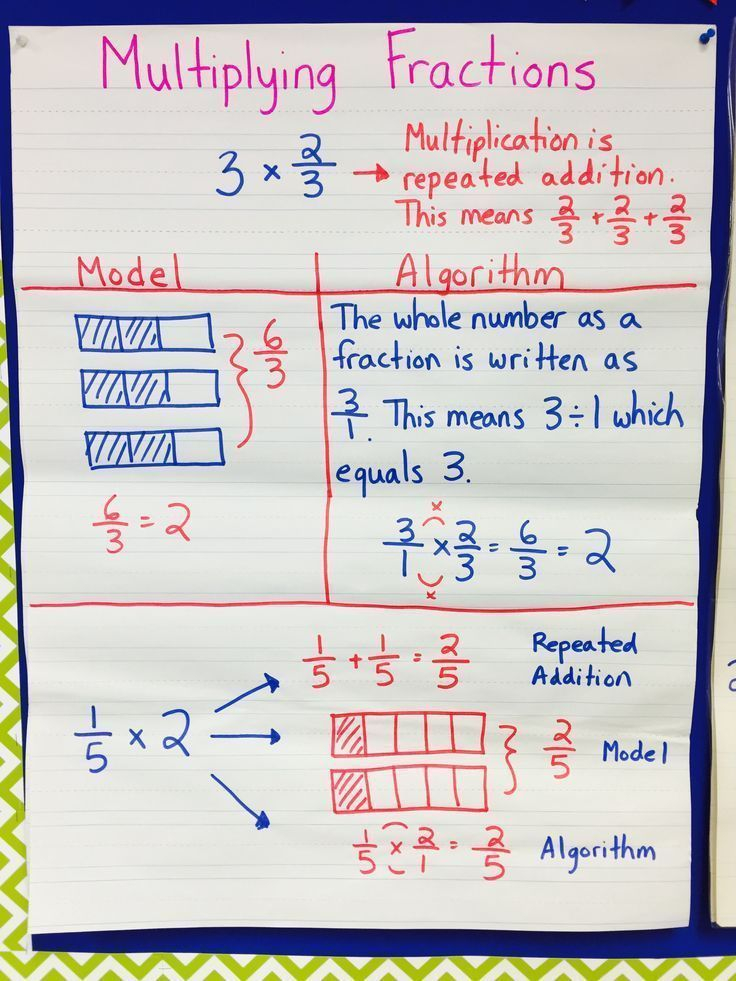 Multiplying Fractions
3 × 2/3 → Multiplication is
repeated addition.
This means 2/3 + 2/3 + 2/3
Model
6/3
6/3 = 2
Algorithm
The whole number as a
fraction is written as
3/1. This means 3÷1 which
equals 3.
x
3/1 × 2/3 = 6/3 = 2
x
1/5 × 2
1/5 + 1/5 = 2/5 Repeated
Addition
2/5 Model
1/5 × 2/1 = 2/5 Algorithm